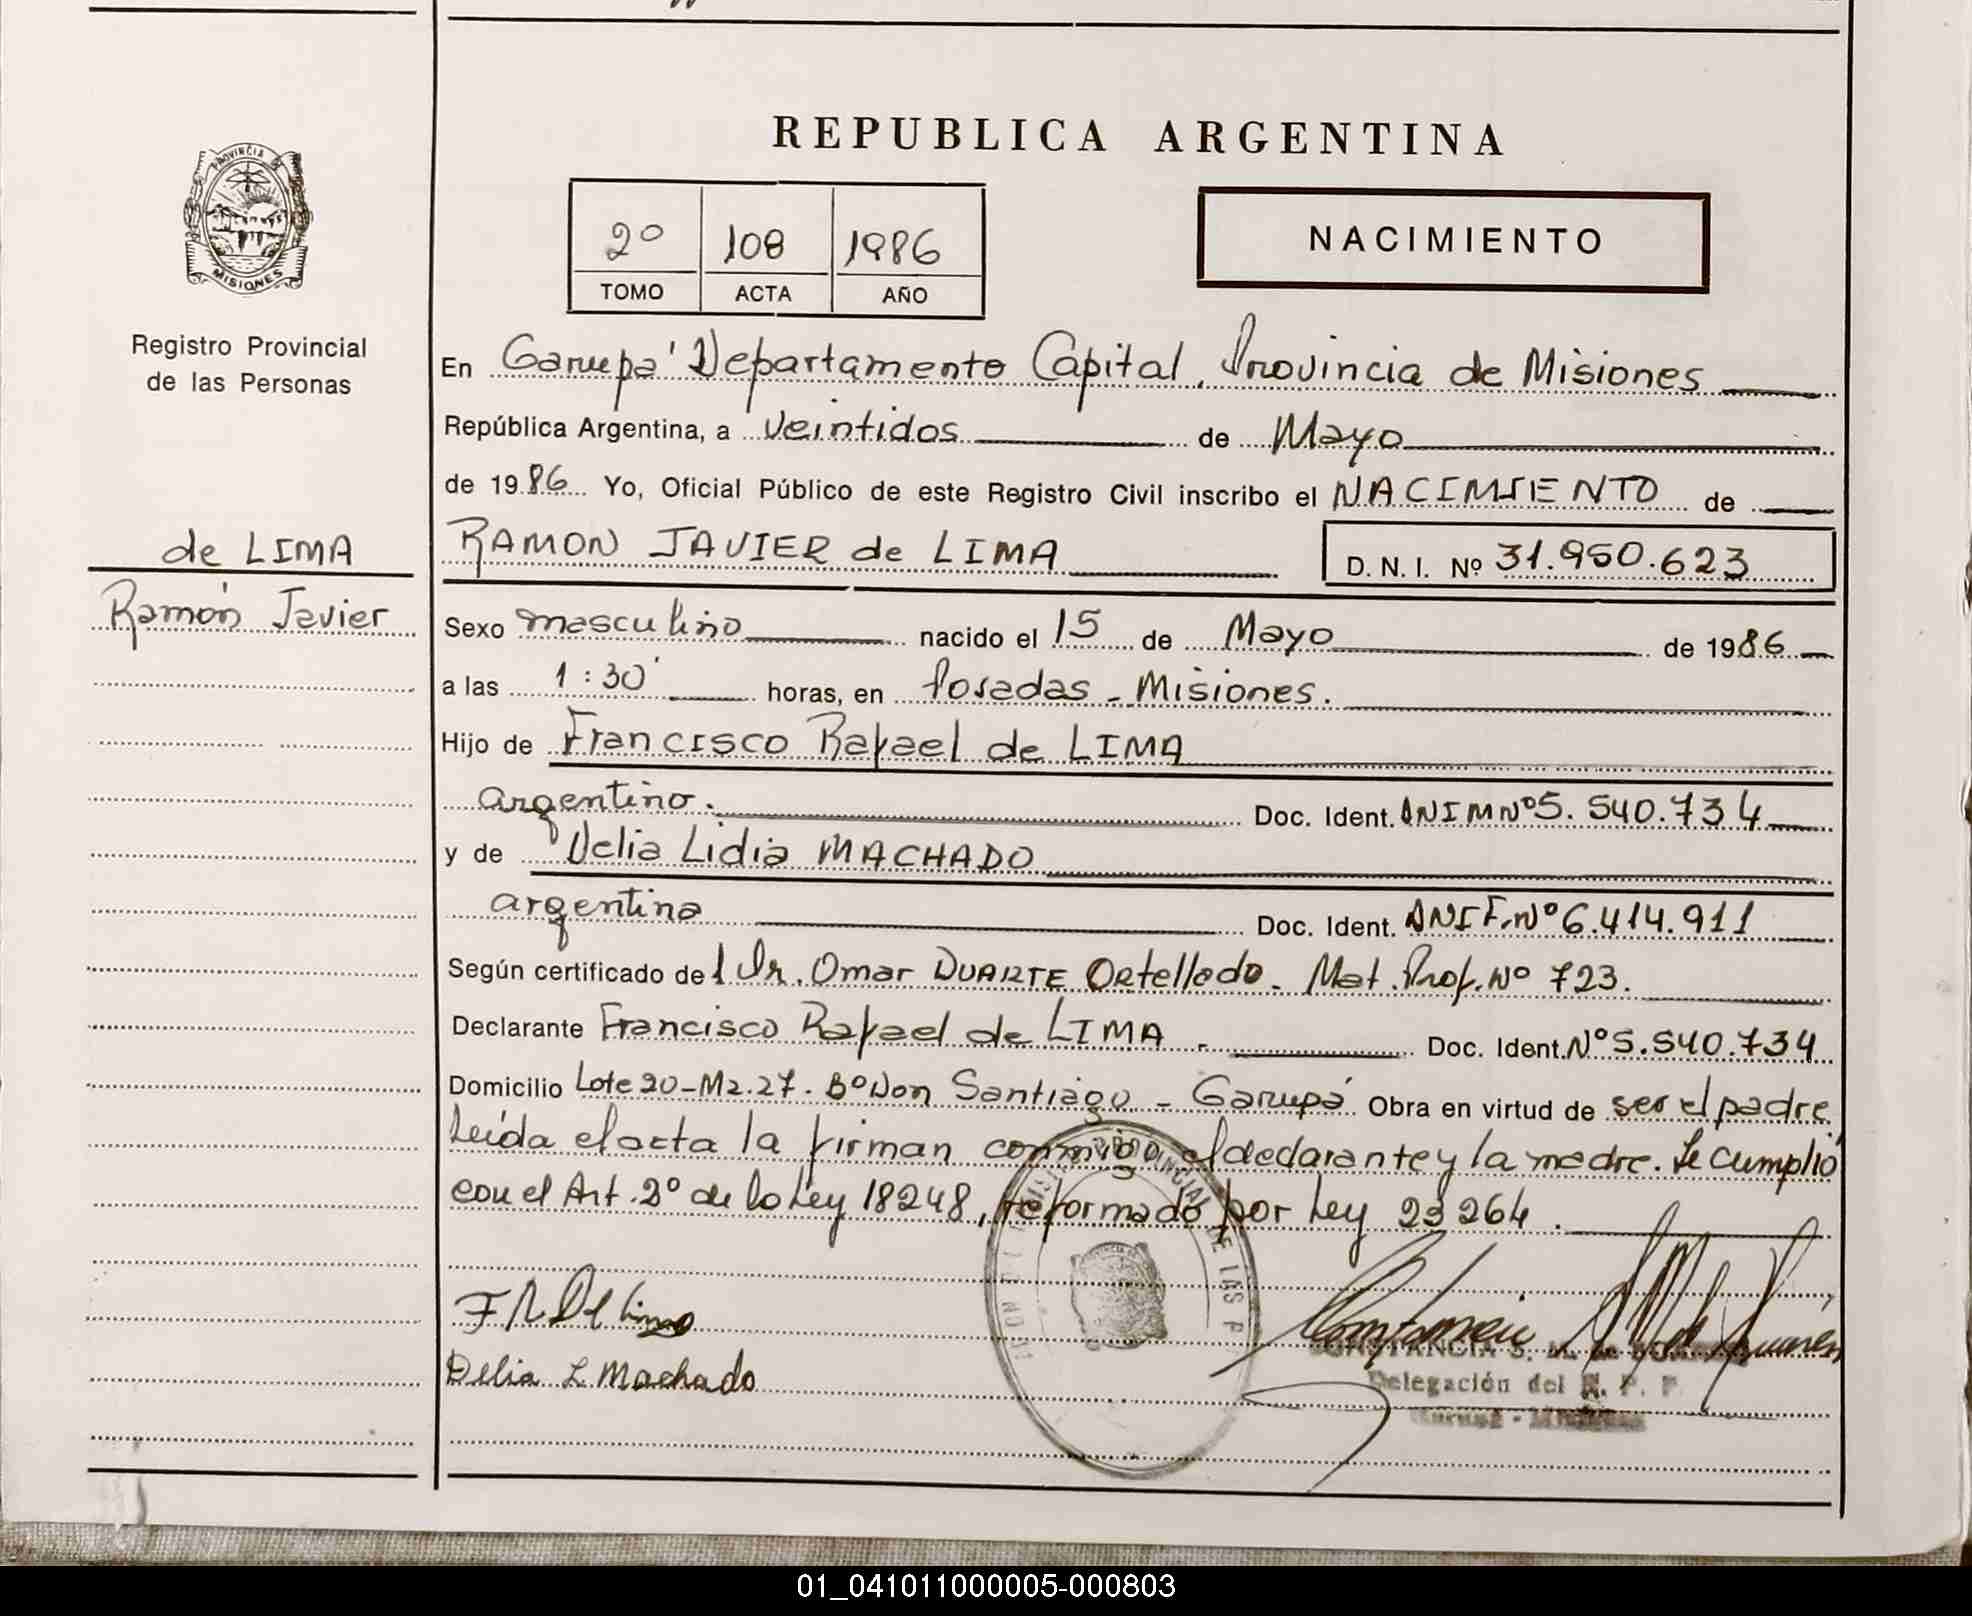 REPUBLICA ARGENTINA
PROVINCIA DE
MISIONES
Registro Provincial
de las Personas
de LIMA
Ramón Javier
2º 108 1986
TOMO ACTA AÑO
NACIMIENTO
En Garupá Departamento Capital, Provincia de Misiones
República Argentina, a veintidos de Mayo
de 1986 Yo, Oficial Público de este Registro Civil inscribo el NACIMIENTO de
RAMON JAVIER de LIMA D. N. I. Nº 31.950.623
Sexo masculino nacido el 15 de Mayo de 1986
a las 1:30' horas, en Posadas - Misiones.
Hijo de Francisco Rafael de LIMA
argentino. Doc. Ident. DNIM Nº 5.540.734
y de Delia Lidia MACHADO
argentina Doc. Ident. DNIF. Nº 6.414.911
Según certificado del Dr. Omar DUARTE Ortellado. Mat. Prof. Nº 723.
Declarante Francisco Rafael de LIMA - Doc. Ident. Nº 5.540.734
Domicilio Lote 20-Mz.27. Bº Don Santiago - Garupá Obra en virtud de ser el padre.
Leída el acta la firman conmigo el declarante y la madre. Se cumplió
con el Art. 2º de la Ley 18248, reformado por Ley 23264.
F R De Lima
Delia L Machado
CONSTANCIA S.
Delegación del R. P. P.
Garupá - Misiones
01_041011000005-000803